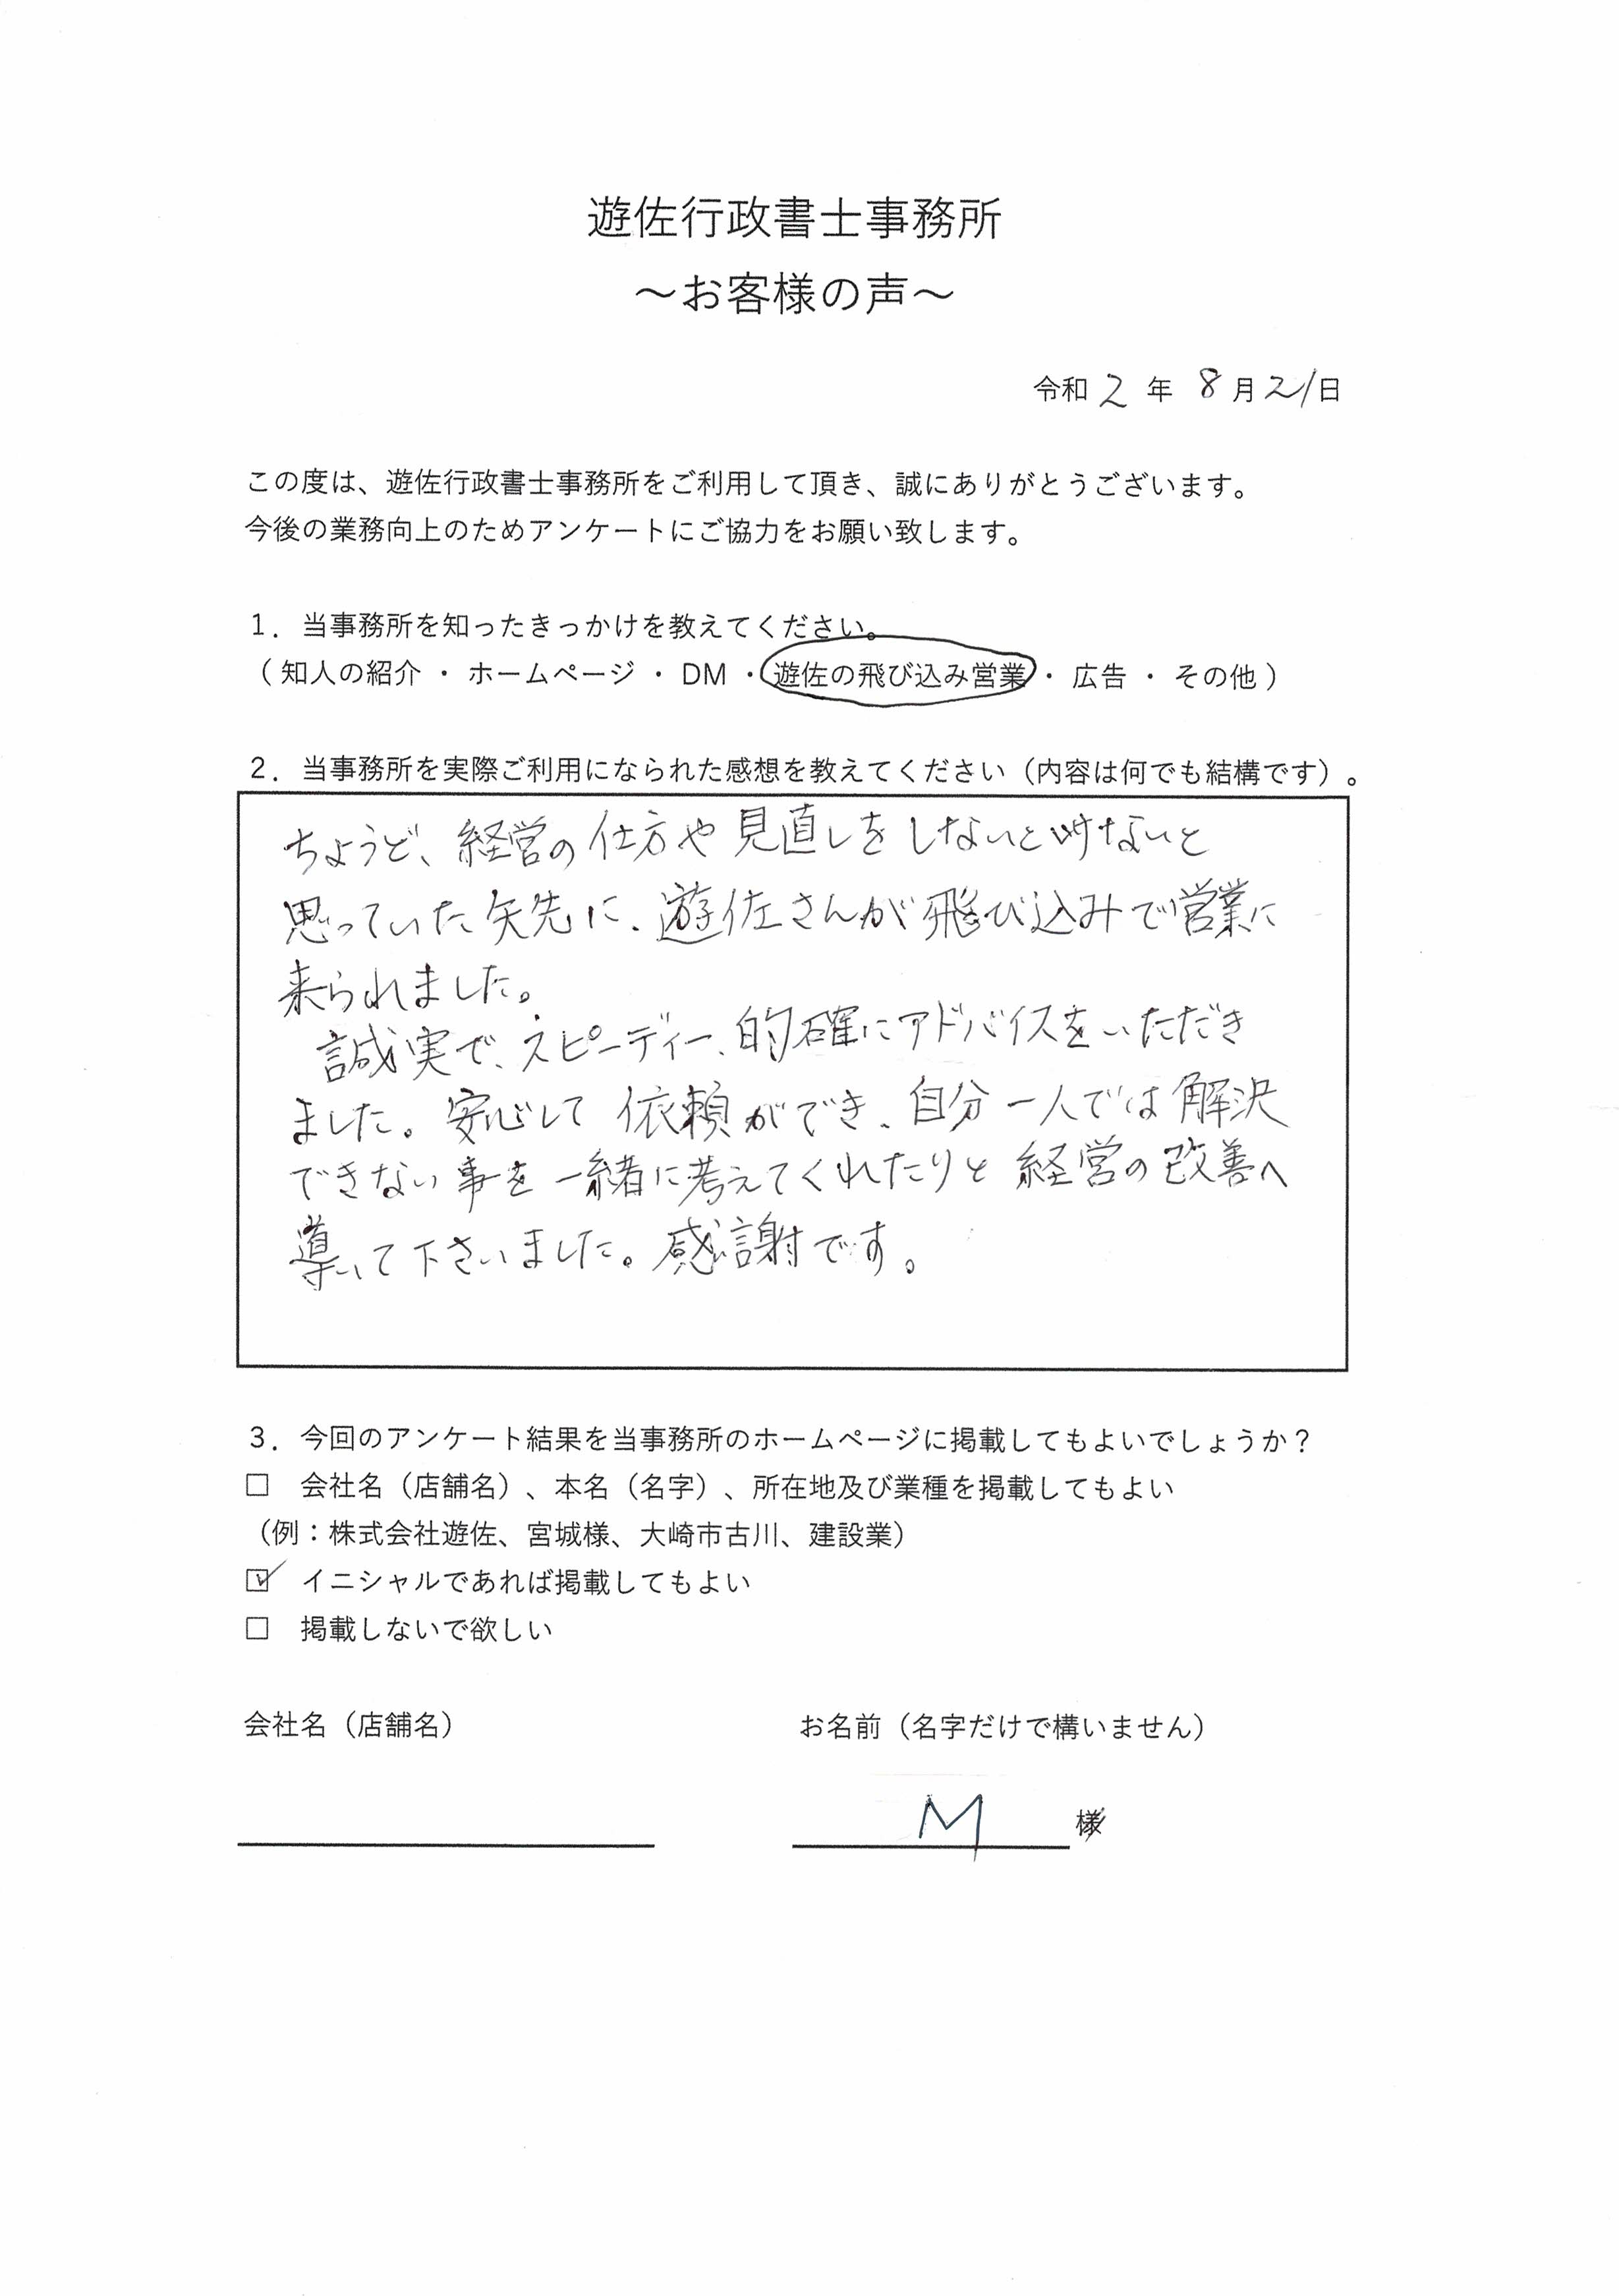 遊佐行政書士事務所
～お客様の声～
令和 2 年 8 月 21 日
この度は、遊佐行政書士事務所をご利用して頂き、誠にありがとうございます。
今後の業務向上のためアンケートにご協力をお願い致します。
1．当事務所を知ったきっかけを教えてください。
（ 知人の紹介 ・ ホームページ ・ DM ・ 遊佐の飛び込み営業 ・ 広告 ・ その他 ）
2．当事務所を実際ご利用になられた感想を教えてください（内容は何でも結構です）。
ちょうど、経営の仕方や見直しをしないといけないと
思っていた矢先に、遊佐さんが飛び込みで営業に
来られました。
誠実で、スピーディー、的確にアドバイスをいただき
ました。安心して依頼ができ、自分一人では解決
できない事を一緒に考えてくれたりと経営の改善へ
導いて下さいました。感謝です。
3．今回のアンケート結果を当事務所のホームページに掲載してもよいでしょうか？
□ 会社名（店舗名）、本名（名字）、所在地及び業種を掲載してもよい
（例：株式会社遊佐、宮城様、大崎市古川、建設業）
☑ イニシャルであれば掲載してもよい
□ 掲載しないで欲しい
会社名（店舗名） お名前（名字だけで構いません）
M 様